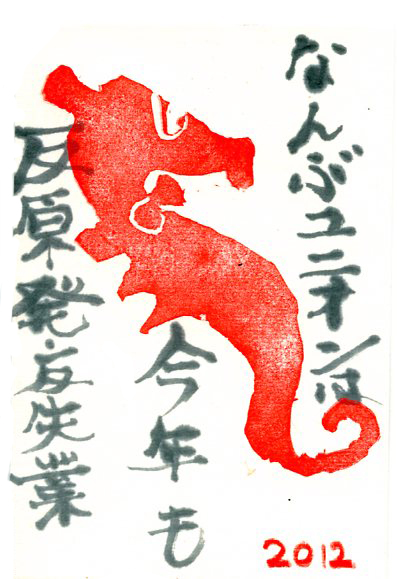 なんぶユニオンは
今年も
反原発・反失業
2012